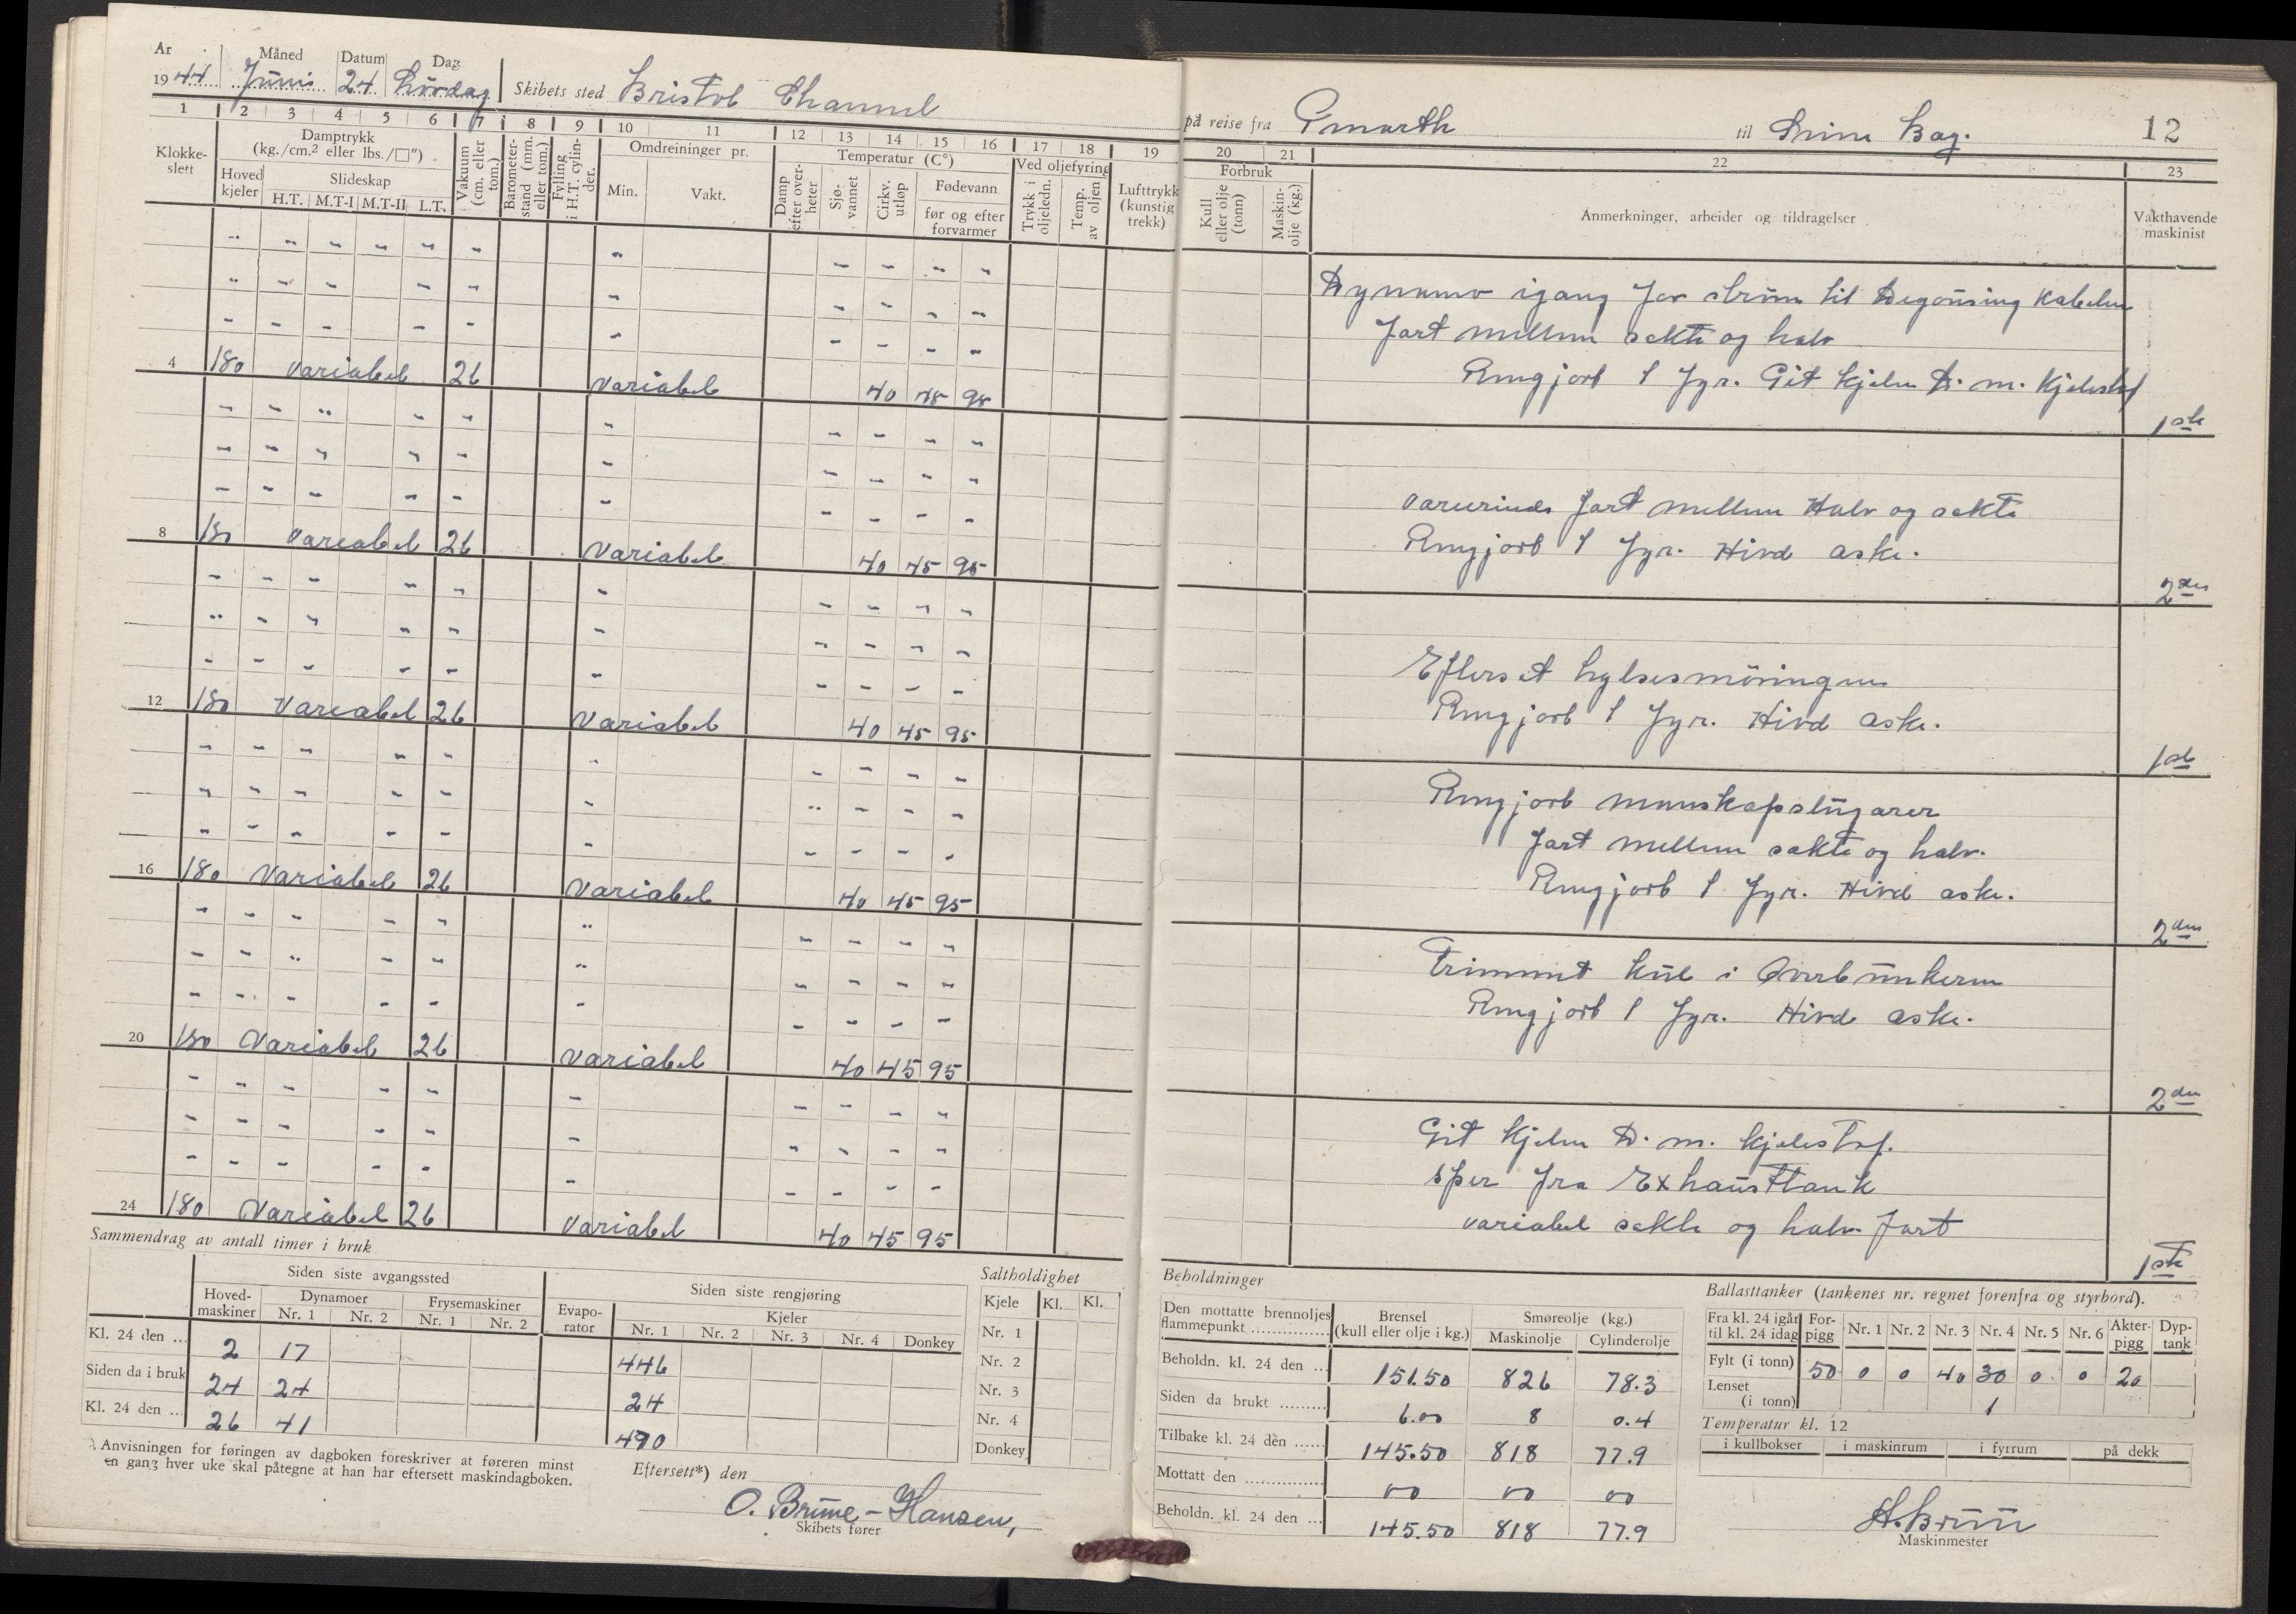 År Måned Datum Dag
1944 Juni 24 Lördag Skibets sted Bristol Channel
på reise fra Pnarth til Seine Bay. 12
1 2 3 4 5 6 7 8 9 10 11 12 13 14 15 16 17 18 19 20 21 22 23
Klokkeslett
Damptrykk
(kg./cm.² eller lbs./□")
Hovedkjeler
Slideskap
H.T. M.T-I M.T-II L.T.
Vakuum (cm. eller tom.)
Barometerstand (mm. eller tom.)
Fylling i H.T. cylinder.
Omdreininger pr.
Min. Vakt.
Temperatur (C°)
Damp efter overheter
Sjøvannet
Cirkv. utløp
Fødevann
før og efter forvarmer
Ved oljefyring
Trykk i oljeledn.
Temp. av oljen
Lufttrykk (kunstig trekk)
Forbruk
Kull eller olje (tonn)
Maskinolje (kg.)
Anmerkninger, arbeider og tildragelser
Vakthavende maskinist
Dynamo igang for ström til Degausing Kabelen
Fart mellem sakte og halv
4 180 Variabel 26 Variabel 40 45 95 Rengjort 1 Fyr. Git Kjelen D. m. Kjelestof
1ste
Varierende Fart mellem Halv og sakte
8 180 Variabel 26 Variabel 40 45 95 Rengjort 1 Fyr. Hivd aske.
2den
Efterset hylsesmöringen
12 180 Variabel 26 Variabel 40 45 95 Rengjort 1 Fyr. Hivd aske.
1ste
Rengjort manskapslugarer
Fart mellem sakte og halv.
16 180 Variabel 26 Variabel 40 45 95 Rengjort 1 Fyr. Hivd aske.
2den
Trimmet kul i Overbunkeren
20 180 Variabel 26 Variabel 40 45 95 Rengjort 1 Fyr. Hivd aske.
2den
Git Kjelen D. m. kjelestof.
sper fra Exhausttank
24 180 Variabel 26 Variabel 40 45 95 variabel sakte og halv Fart
1ste
Sammendrag av antall timer i bruk
Siden siste avgangssted
Hovedmaskiner Dynamoer Nr. 1 Nr. 2 Frysemaskiner Nr. 1 Nr. 2
Siden siste rengjøring
Evaporator Kjeler Nr. 1 Nr. 2 Nr. 3 Nr. 4 Donkey
Kl. 24 den ... 2 17 446
Siden da i bruk 24 24 24
Kl. 24 den ... 26 41 470
Saltholdighet
Kjele Kl. Kl.
Nr. 1
Nr. 2
Nr. 3
Nr. 4
Donkey
*) Anvisningen for føringen av dagboken foreskriver at føreren minst
en gang hver uke skal påtegne at han har eftersett maskindagboken.
Eftersett*) den
O. Brune-Hansen,
Skibets fører
Beholdninger
Den mottatte brennoljes flammepunkt
Brensel (kull eller olje i kg.)
Smøreolje (kg.)
Maskinolje Cylinderolje
Beholdn. kl. 24 den ... 151.50 826 78.3
Siden da brukt ......... 6.00 8 0.4
Tilbake kl. 24 den ...... 145.50 818 77.9
Mottatt den ............... 00 00 00
Beholdn. kl. 24 den ... 145.50 818 77.9
Ballasttanker (tankenes nr. regnet forenfra og styrbord).
Fra kl. 24 igår til kl. 24 idag Forpigg Nr. 1 Nr. 2 Nr. 3 Nr. 4 Nr. 5 Nr. 6 Akterpigg Dyptank
Fylt (i tonn) 50 0 0 40 30 0 0 20
Lenset (i tonn) 1
Temperatur kl. 12
i kullbokser i maskinrum i fyrrum på dekk
Maskinmester